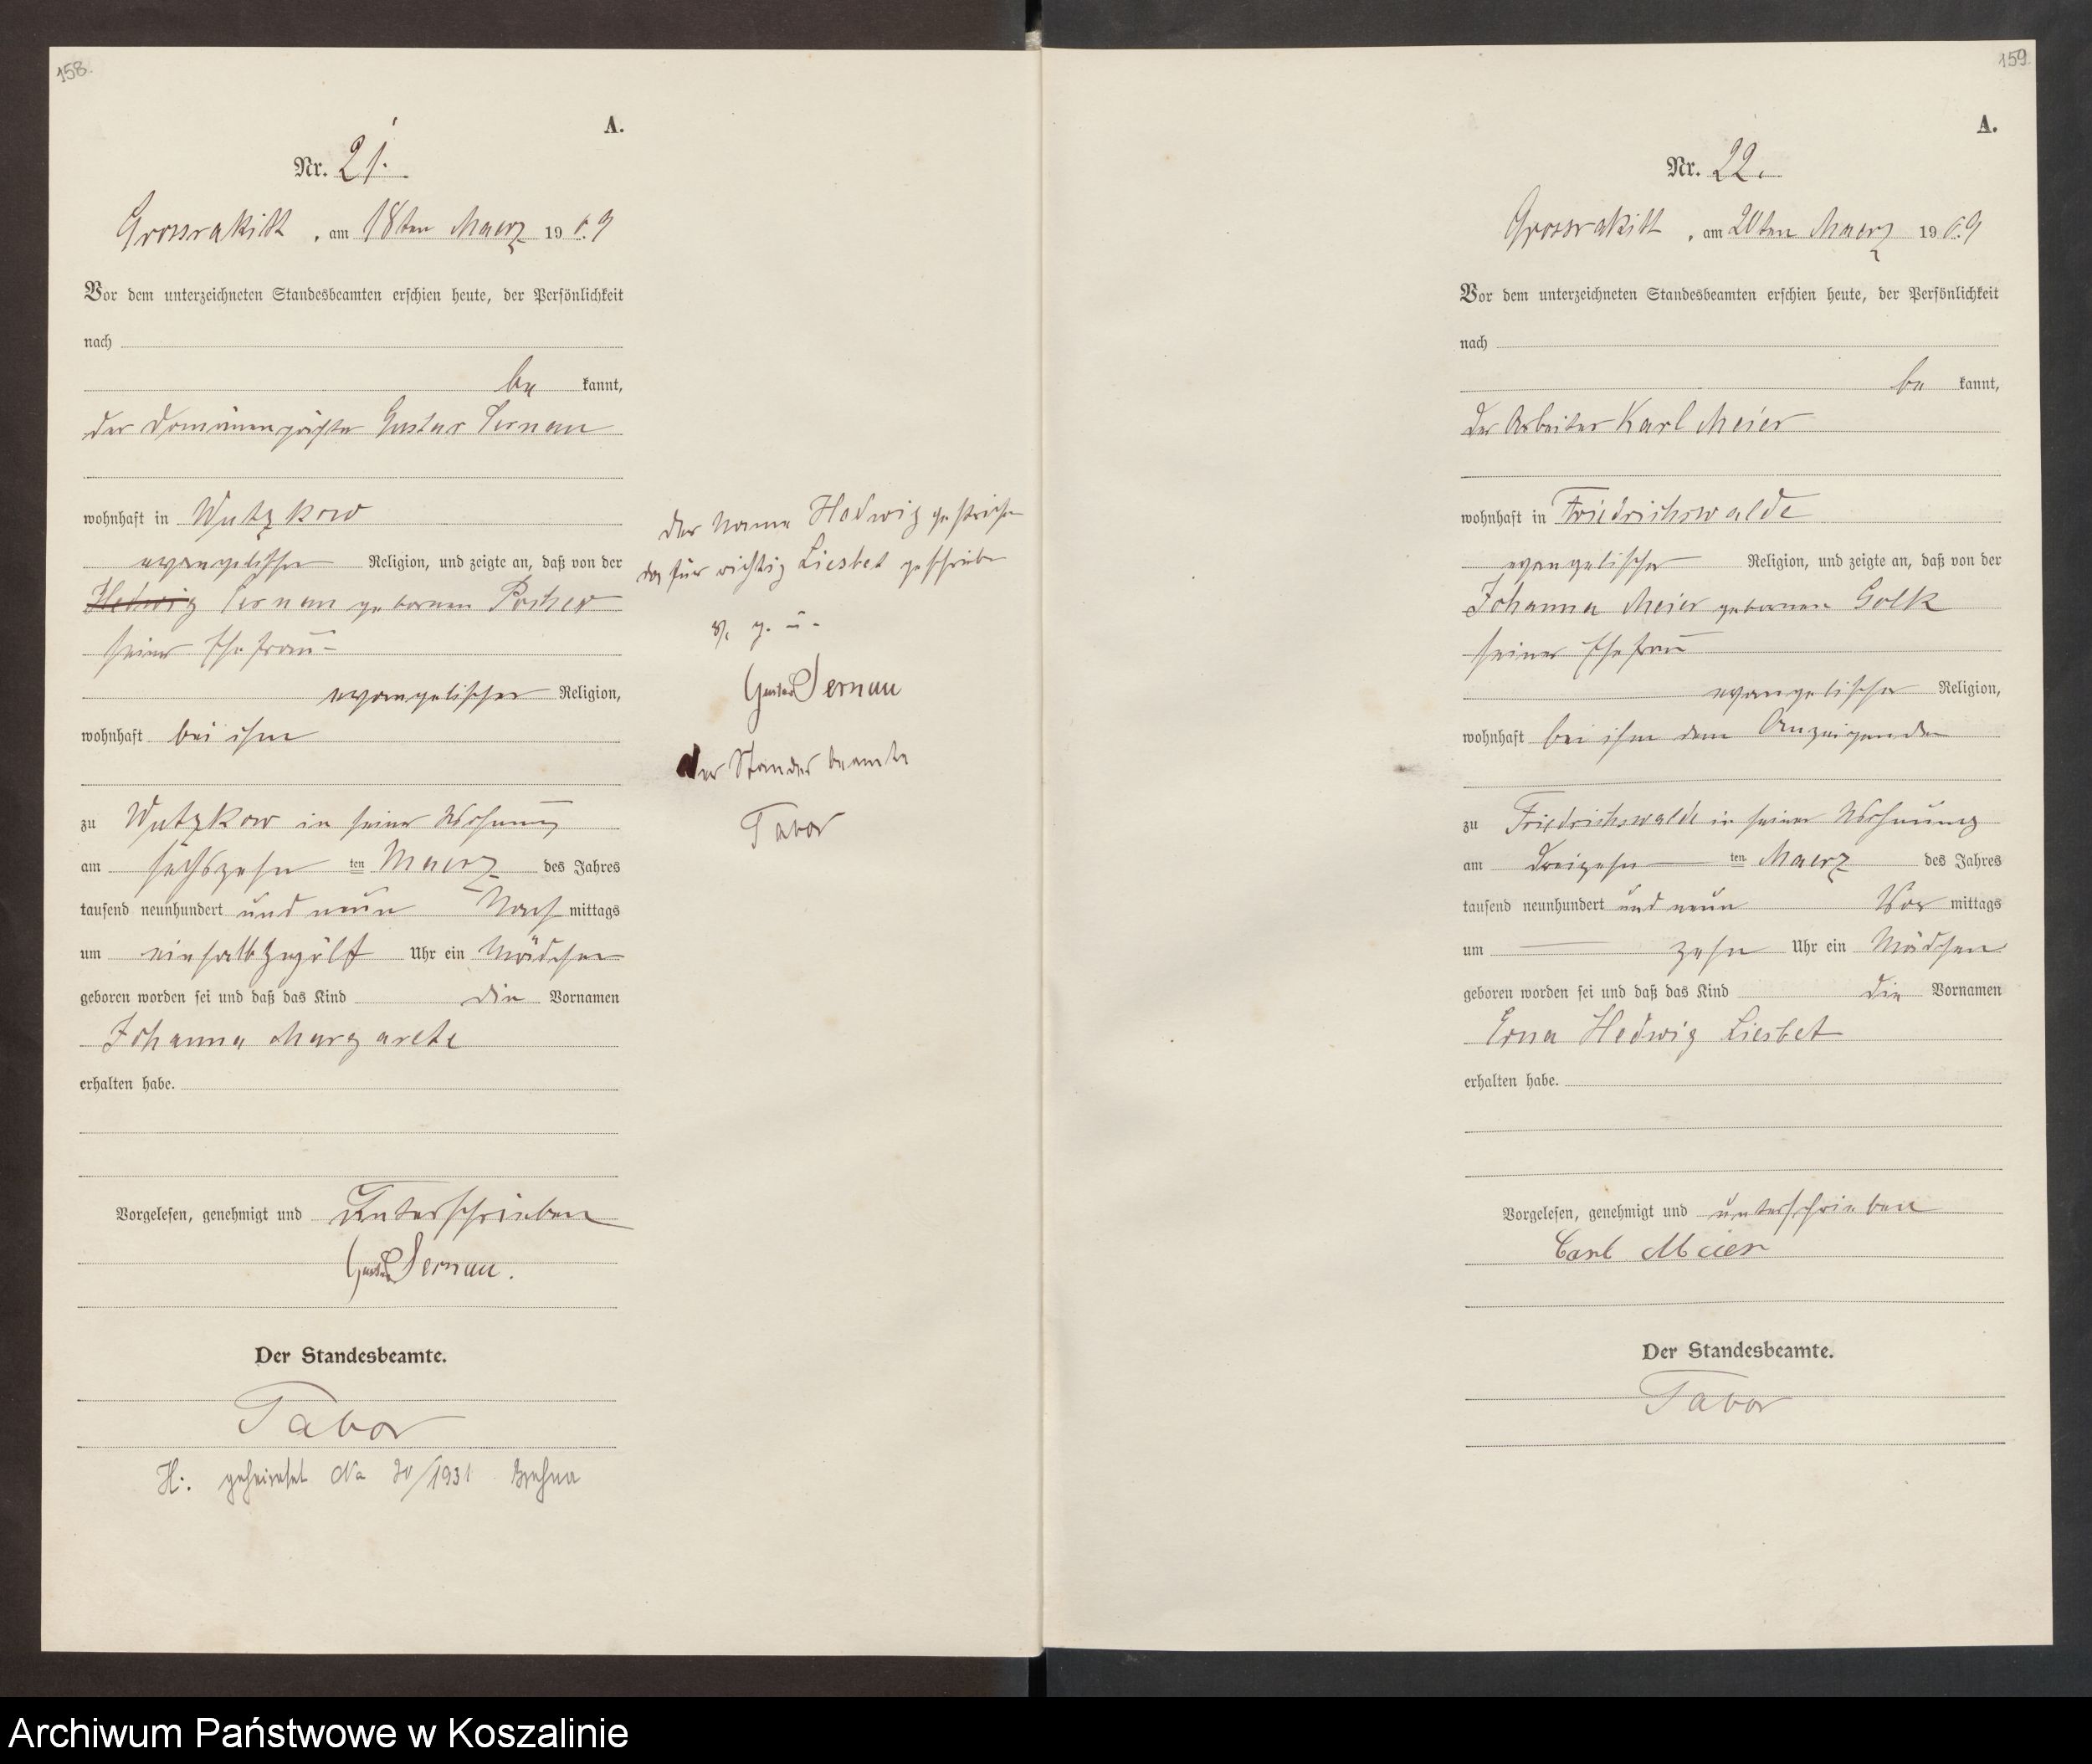 158.
A.
Nr. 21.
Grossrakitt, am 18ten Maerz 1909
Vor dem unterzeichneten Standesbeamten erschien heute, der Persönlichkeit
nach
be kannt,
der Domänenpächter Gustav Sernau
wohnhaft in Wutzkow
evangelischer Religion, und zeigte an, daß von der
Hedwig Sernau geborenen
seiner Ehefrau
evangelischer Religion,
wohnhaft bei ihm
zu Wutzkow in seiner Wohnung
am sechszehn ten Maerz des Jahres
tausend neunhundert und neun Nach mittags
um einhalbzwölf Uhr ein Mädchen
geboren worden sei und daß das Kind die Vornamen
Johanna Margarete
erhalten habe.
Vorgelesen, genehmigt und unterschrieben
Gustav Sernau.
Der Standesbeamte.
Tabor
H: geheiratet No 30/1931
der Name Hedwig gestrichen
dafür richtig Liesbet geschrieben
v. g. u.
Gustav Sernau
der Standesbeamte
Tabor
159.
A.
Nr. 22.
Grossrakitt, am 20ten Maerz 1909
Vor dem unterzeichneten Standesbeamten erschien heute, der Persönlichkeit
nach
be kannt,
der Arbeiter Karl Meier
wohnhaft in Friedrichswalde
evangelischer Religion, und zeigte an, daß von der
Johanna Meier geborenen Golk
seiner Ehefrau
evangelischer Religion,
wohnhaft bei ihm dem Anzeigenden
zu Friedrichswalde in seiner Wohnung
am dreizehn ten Maerz des Jahres
tausend neunhundert und neun Vor mittags
um zehn Uhr ein Mädchen
geboren worden sei und daß das Kind die Vornamen
Erna Hedwig Liesbet
erhalten habe.
Vorgelesen, genehmigt und unterschrieben
Carl Meier
Der Standesbeamte.
Tabor
Archiwum Państwowe w Koszalinie